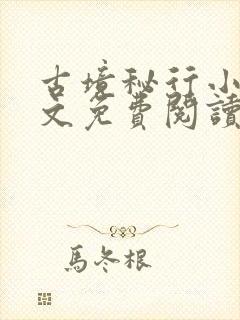 古境秘行小
文免費閱讀
馬冬根